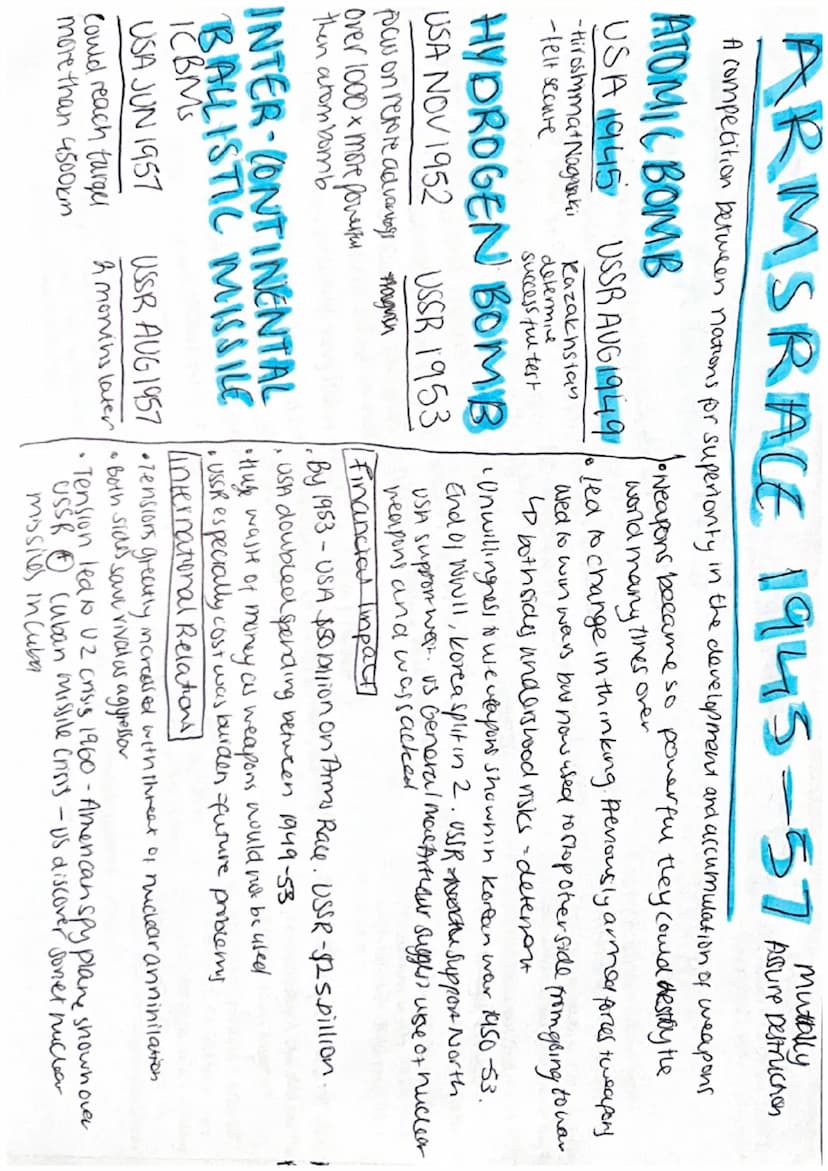 ARMS RACE 1945-57
Mutally
Assure Destruction
A competition between nations for superiority in the development and accumulation of weapons
ATOMIC BOMB
USA 1945
-Hiroshima + Nagasaki
-felt secure
USSR AUG 1949
Kazakhstan
determine
successful test
HYDROGEN BOMB
USA NOV 1952
focus on advantage
over 1000 x more powerful
then atom bomb
USSR 1953
INTER-CONTINENTAL
BALLISTIC MISSILE
ICBMs
USA JUN 1957
could reach target
more than 4500km
USSR AUG 1957
2 months later
• Weapons became so powerful they could destroy the
world many times over
• Led to change in thinking. Previously armed forces + weapons
used to win wars but now used to stop other side from going to war
↳ both sides understood risks = deterrent
• Unwillingness to use weapons shown in Korean war 1950-53.
End of WWII, Korea split in 2. USSR support North
USA support West. US General MacArthur suggest use of nuclear
weapons and was sacked
Financial Impact
• By 1953 - USA $50 billion on Arms Race. USSR - $25 billion.
• USA doubled spending between 1949-53
• Huge waste of money as weapons would not be used
• USSR especially cost was burden - future problems
International Relations
• Tensions greatly increased with threat of nuclear anminilation
• Both sides saw rival as aggressor
• Tension led to U2 crisis 1960 - American spy plane shown over
USSR + Cuban Missile Crisis - US discover Soviet nuclear
missiles in Cuba